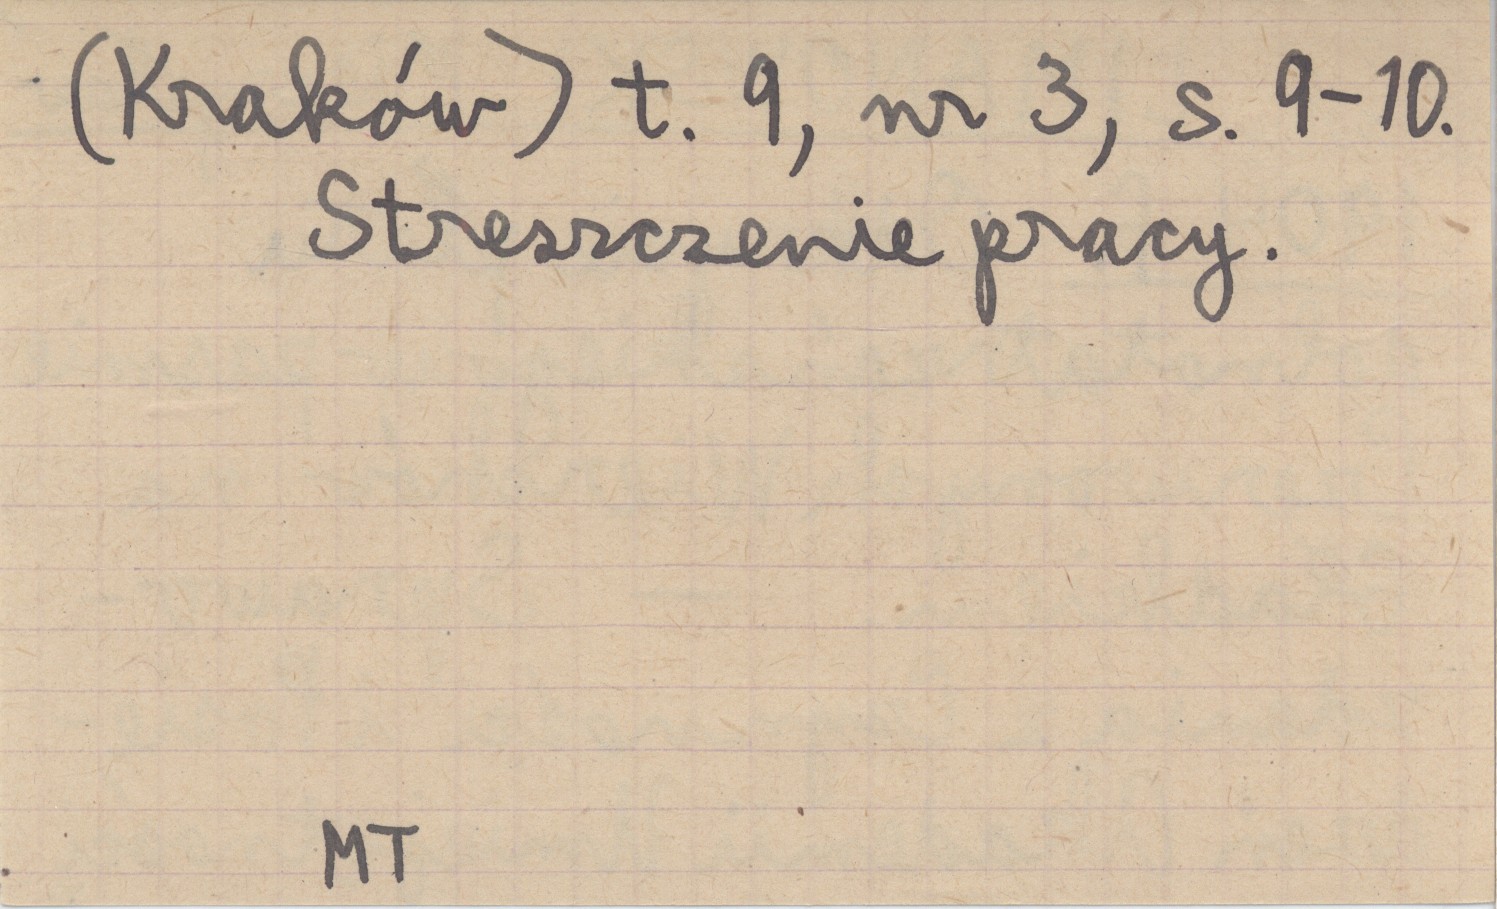 (Kraków) t. 9, nr 3, s. 9-10.
Streszczenie pracy.
MT